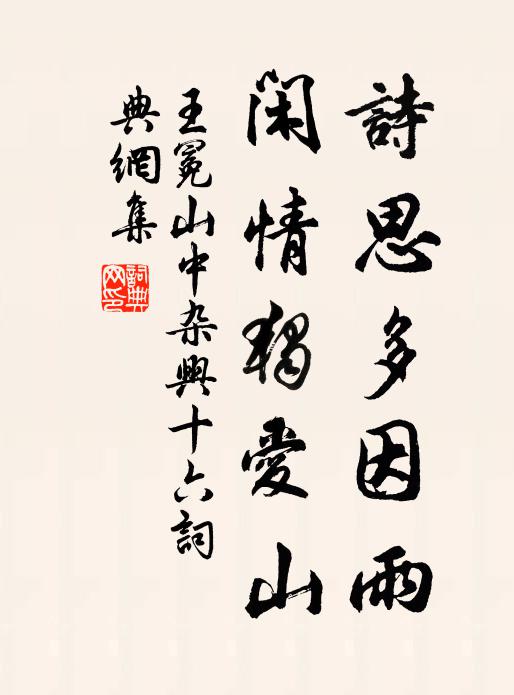 詩思多因雨
閑情獨愛山
王冕山中杂興十六詞
典網集
詞典
网印